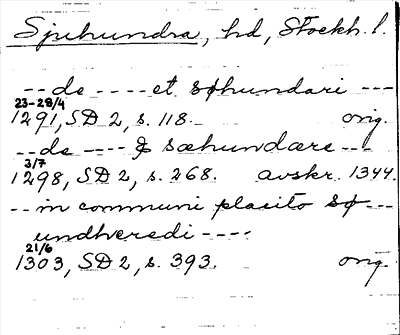 Sjuhundra, hd, Stockh. l.
-- de ---- et søhundari ---
23-28/4
1291, SD 2, s. 118. orig.
-- de ---- & sæhundære ---
3/7
1298, SD 2, s. 268. avskr. 1344.
-- in communi placito sø ---
undheredi ----
21/6
1303, SD 2, s. 393. orig.